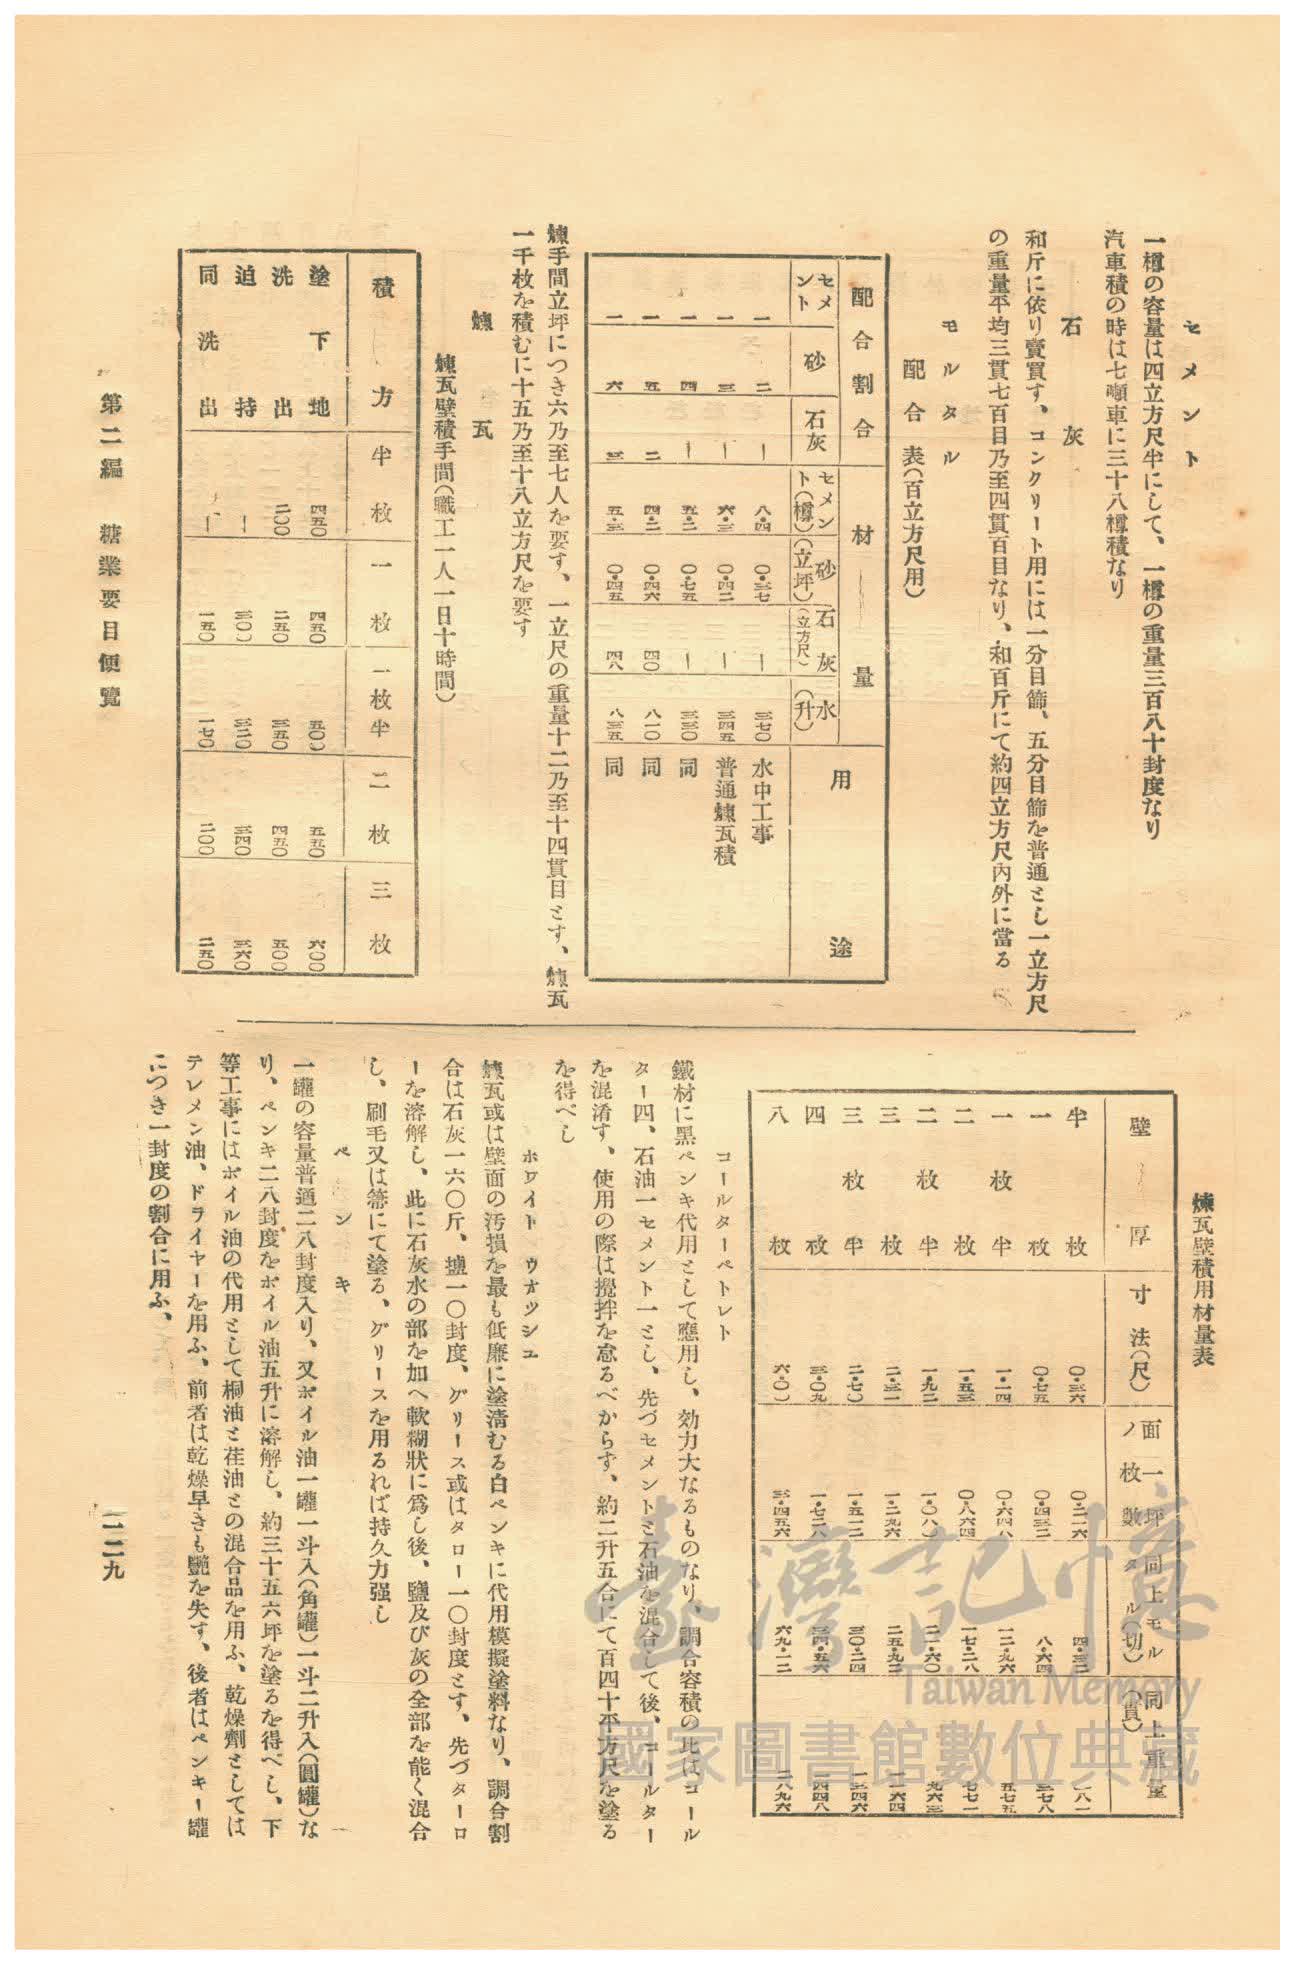 セメント
一樽の容量は四立方尺半にして、一樽の重量三百八十封度なり
汽車積の時は七噸車に三十八樽積なり
石灰
和斤に依り賣買す、コンクリート用には一分目篩、五分目篩を普通とし一立方尺
の重量平均三貫七百目乃至四貫百目なり、和百斤にて約四立方尺內外に當る
モルタル
配合表(百立方尺用)
配合割合 材量 用途
セメント 砂 石灰 セメント(樽) 砂(立坪) 石灰(立方尺) 水(升)
一 二 ー 八・四 〇・三七 ー 三七〇 水中工事
一 三 ー 六・三 〇・四二 ー 三四五 普通煉瓦積
一 四 ー 五・二 〇・七五 ー 三三〇 同
一 五 二 四・二 〇・四六 四〇 八一〇 同
一 六 三 五・三 〇・四五 四八 八三五 同
煉手間立坪につき六乃至七人を要す、一立尺の重量十二乃至十四貫目とす、煉瓦
一千枚を積むに十五乃至十八立方尺を要す
煉瓦
煉瓦壁積手間(職工一人一日十時間)
積方 半枚 一枚 一枚半 二枚 三枚
塗下地 四五〇 四五〇 五〇〇 五五〇 六〇〇
洗出 二〇〇 二五〇 三五〇 四五〇 五〇〇
迫持 ー 三〇〇 三二〇 三四〇 三六〇
同洗出 ー 一五〇 一七〇 二〇〇 二五〇
第二編 糖業要目便覽
煉瓦壁積用材量表
壁厚 寸法(尺) 面一坪ノ枚數 同上モルタル(切) 同上重量(貫)
半枚 〇・三六 〇・二一六 四・三二 一八一
一枚 〇・七五 〇・四三二 八・六四 三七八
一枚半 一・一四 〇・六四八 一二・九六 五七五
二枚 一・五三 〇・八六四 一七・二八 七七一
二枚半 一・九二 一・〇八〇 二一・六〇 九六三
三枚 二・三一 一・二九六 二五・九二 一一六四
三枚半 二・七〇 一・五一二 三〇・二四 一三四六
四枚 三・〇九 一・七二八 三四・五六 一四四八
八枚 六・〇一 三・四五六 六九・一二 二八九六
コールターペトレト
鐵材に黑ペンキ代用として應用し、効力大なるものなり、調合容積の比はコール
ター四、石油一セメント一とし、先づセメントミ石油を混合して後、コールター
を混淆す、使用の際は攪拌を怠るべからす、約二升五合にて百四十平方尺を塗る
を得べし
ホワイト、ウオツシユ
煉瓦或は壁面の汚損を最も低廉に塗淸むる白ペンキに代用模擬塗料なり、調合割
合は石灰一六〇斤、鹽一〇封度、グリース或はタロー一〇封度とす、先づターロ
ーを溶解し、此に石灰水の部を加へ軟糊狀に爲し後、鹽及び灰の全部を能く混合
し、刷毛又は箒にて塗る、グリースを用るれば持久力强し
ペンキ
一罐の容量普通二八封度入り、又ボイル油一罐一斗入(角罐)一斗二升入(圓罐)な
り、ペンキ二八封度をボイル油五升に溶解し、約三十五六坪を塗るを得べし、下
等工事にはボイル油の代用として桐油と荏油との混合品を用ふ、乾燥劑としては
テレメン油、ドライヤーを用ふ、前者は乾燥早きも艷を失す、後者はペンキ一罐
につき一封度の割合に用ふ、
一二二九
臺灣記憶
Taiwan Memory
國家圖書館數位典藏